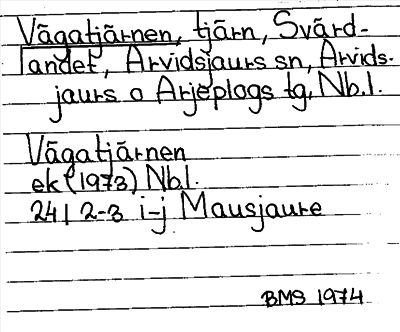 Vågatjärnen, tjärn, Svärd-
landet, Arvidsjaurs sn, Arvids-
jaurs o Arjeplogs tg, Nb.l.
Vågatjärnen
ek (1973) Nb.l.
24 I 2-3 i-j Mausjaure
BMS 1974